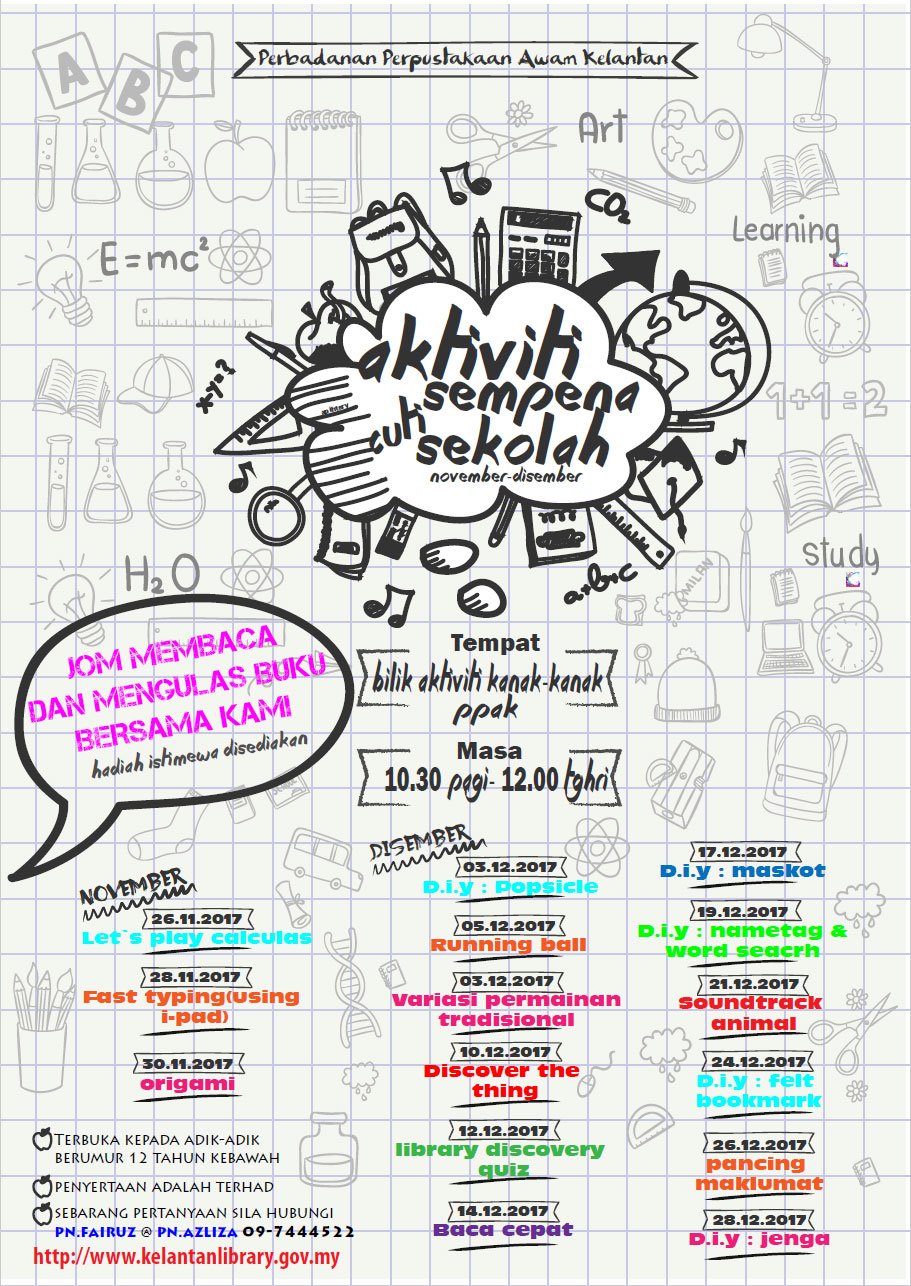 Perbadanan Perpustakaan Awam Kelantan
A
B
C
Art
CO2
Learning
E=mc2
aktiviti
sempena
x-y=?
1+1=2
cuti
sekolah
november-disember
H2O
Study
MILAN
a+b=c
JOM MEMBACA
DAN MENGULAS BUKU
BERSAMA KAMI
hadiah istimewa disediakan
Tempat
bilik aktiviti kanak-kanak
ppak
Masa
10.30 pagi- 12.00 tghri
NOVEMBER
26.11.2017
Let`s play calculas
28.11.2017
Fast typing(using
i-pad)
30.11.2017
origami
DISEMBER
03.12.2017
D.i.y : Popsicle
05.12.2017
Running ball
03.12.2017
Variasi permainan
tradisional
10.12.2017
Discover the
thing
12.12.2017
library discovery
quiz
14.12.2017
Baca cepat
17.12.2017
D.i.y : maskot
19.12.2017
D.i.y : nametag &
word seacrh
21.12.2017
Soundtrack
animal
24.12.2017
D.i.y : felt
bookmark
26.12.2017
pancing
maklumat
28.12.2017
D.i.y : jenga
Terbuka kepada adik-adik
berumur 12 tahun kebawah
penyertaan adalah terhad
sebarang pertanyaan sila hubungi
pn.fairuz @ pn.azliza 09-7444522
http://www.kelantanlibrary.gov.my